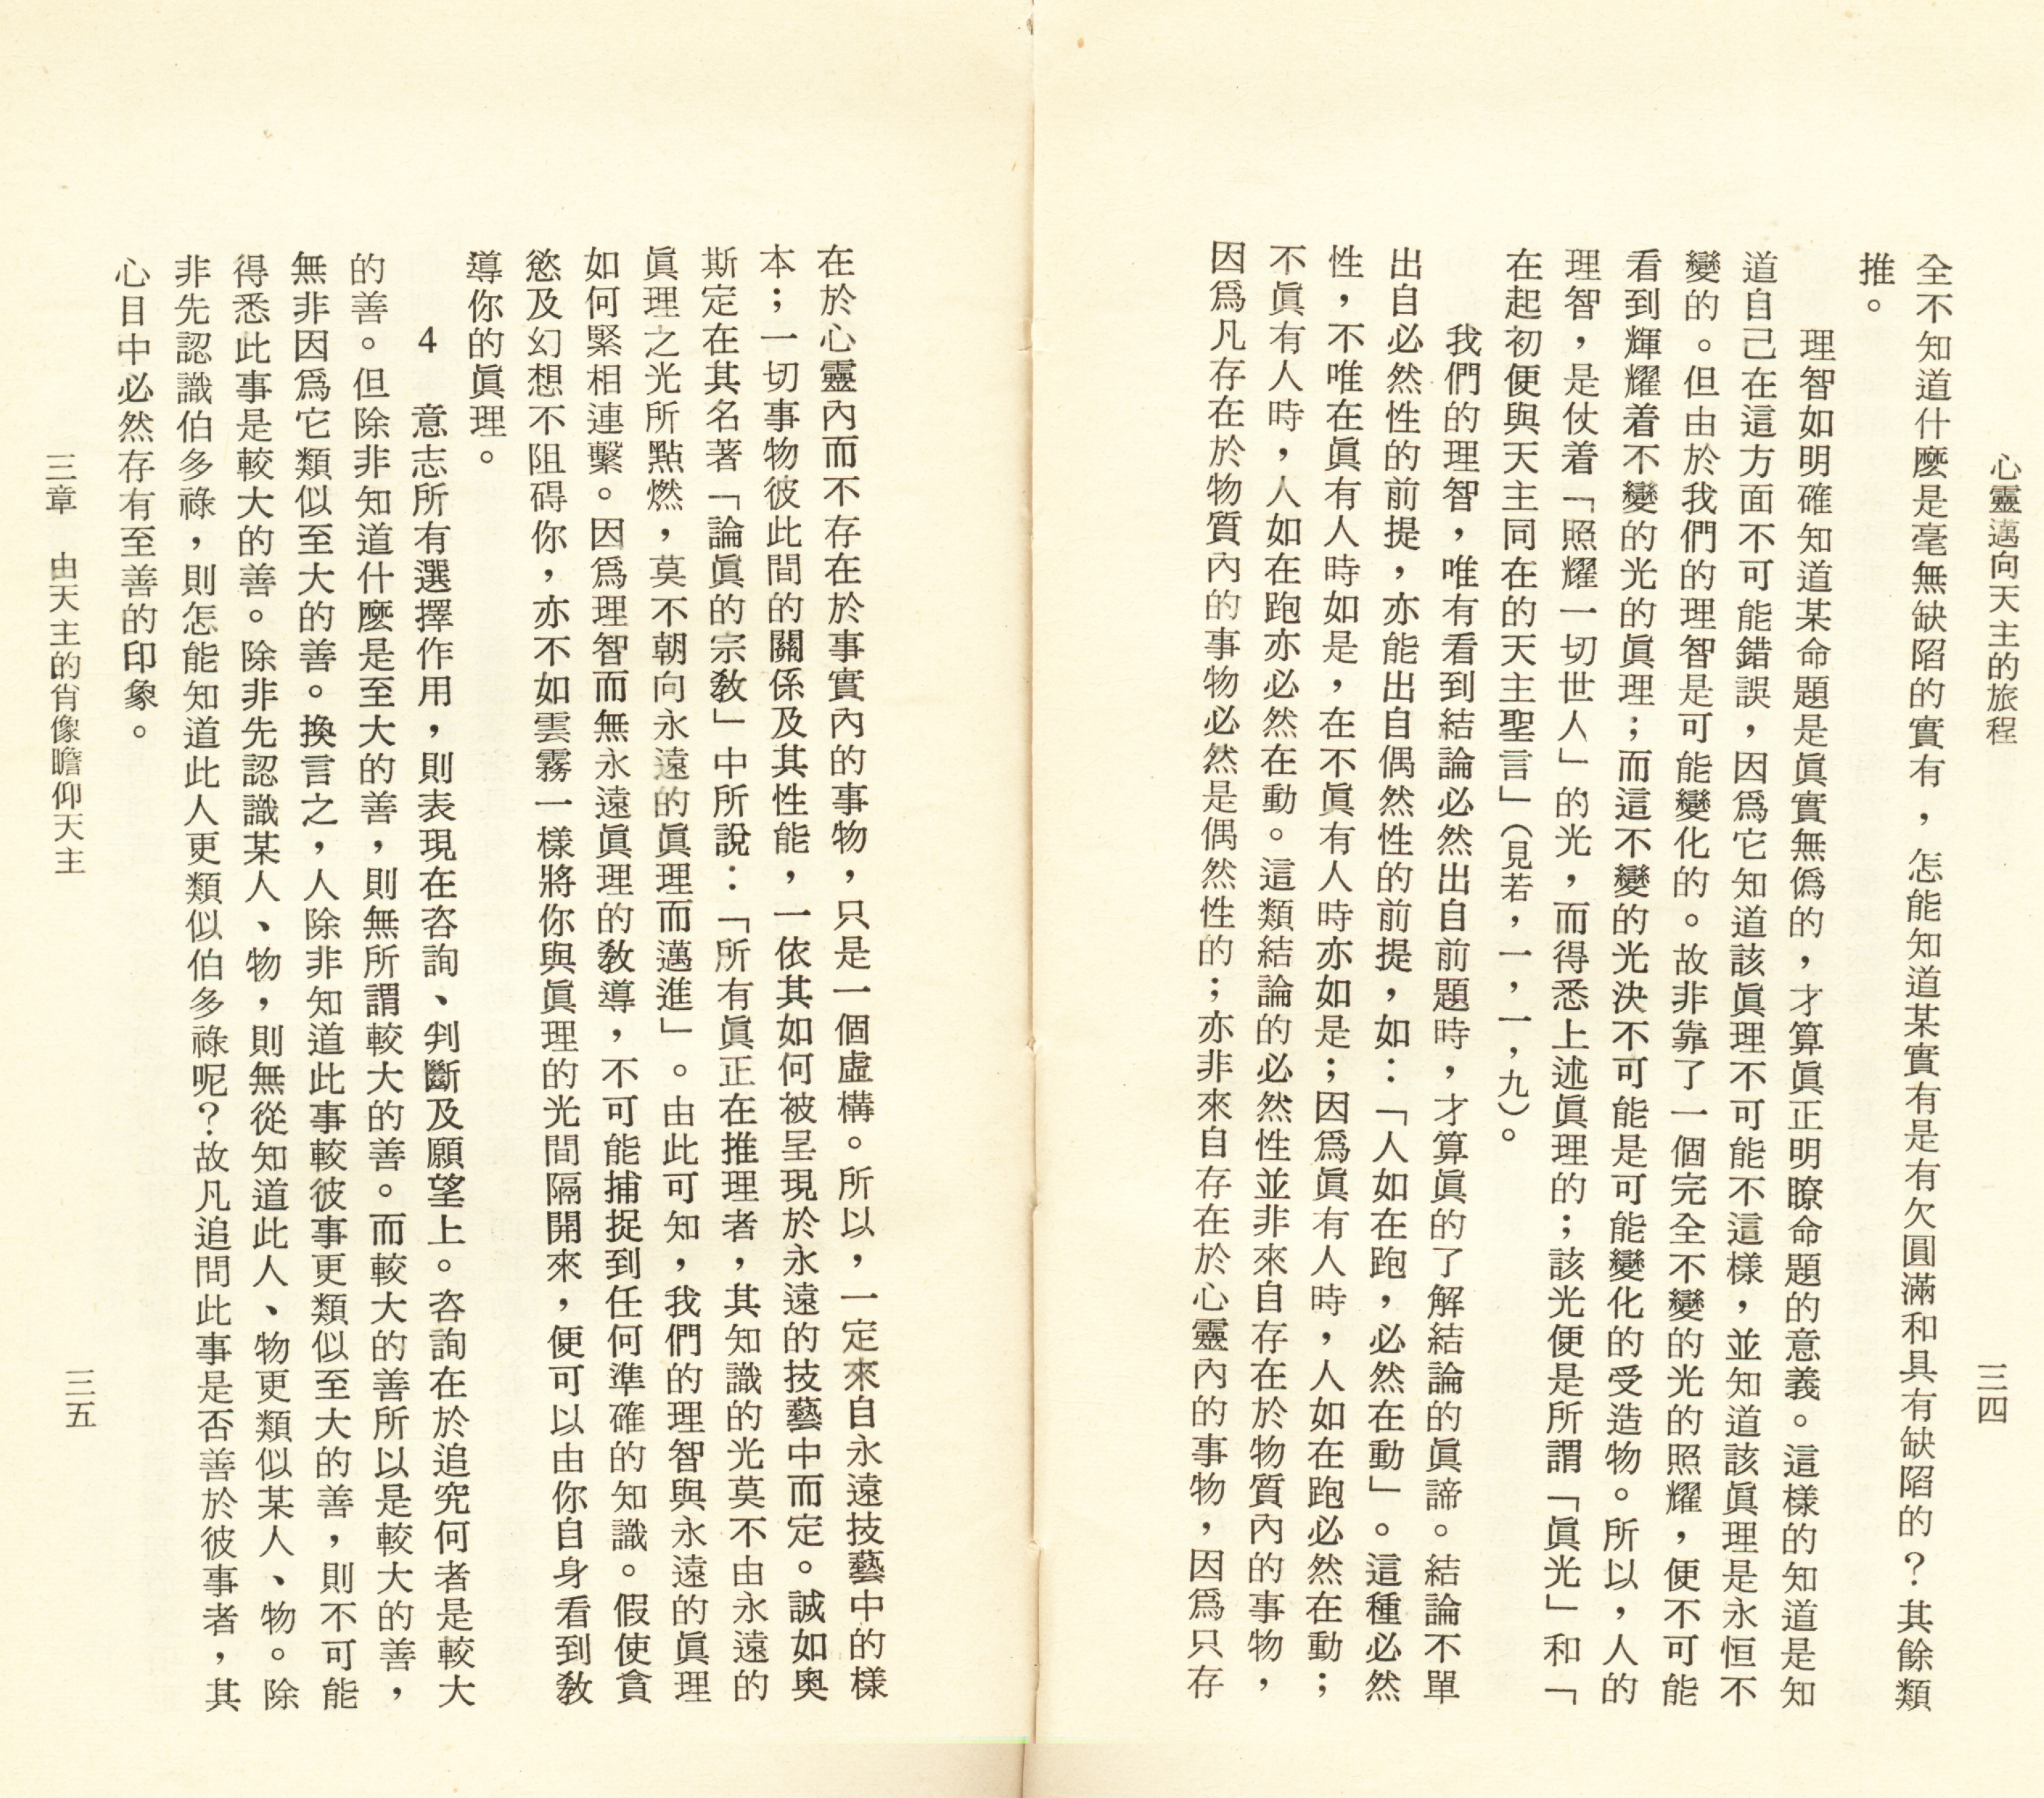 心靈邁向天主的旅程
三四
全不知道什麼是毫無缺陷的實有，怎能知道某實有是有欠圓滿和具有缺陷的？其餘類
推。
理智如明確知道某命題是眞實無僞的，才算眞正明瞭命題的意義。這樣的知道是知
道自己在這方面不可能錯誤，因爲它知道該眞理不可能不這樣，並知道該眞理是永恒不
變的。但由於我們的理智是可能變化的。故非靠了一個完全不變的光的照耀，便不可能
看到輝耀着不變的光的眞理；而這不變的光決不可能是可能變化的受造物。所以，人的
理智，是仗着「照耀一切世人」的光，而得悉上述眞理的；該光便是所謂「眞光」和「
在起初便與天主同在的天主聖言」（見若，一，一，九）。
我們的理智，唯有看到結論必然出自前題時，才算眞的了解結論的眞諦。結論不單
出自必然性的前提，亦能出自偶然性的前提，如：「人如在跑，必然在動」。這種必然
性，不唯在眞有人時如是，在不眞有人時亦如是；因爲眞有人時，人如在跑必然在動；
不眞有人時，人如在跑亦必然在動。這類結論的必然性並非來自存在於物質內的事物，
因爲凡存在於物質內的事物必然是偶然性的；亦非來自存在於心靈內的事物，因爲只存
在於心靈內而不存在於事實內的事物，只是一個虛構。所以，一定來自永遠技藝中的樣
本；一切事物彼此間的關係及其性能，一依其如何被呈現於永遠的技藝中而定。誠如奧
斯定在其名著「論眞的宗敎」中所說：「所有眞正在推理者，其知識的光莫不由永遠的
眞理之光所點燃，莫不朝向永遠的眞理而邁進」。由此可知，我們的理智與永遠的眞理
如何緊相連繫。因爲理智而無永遠眞理的敎導，不可能捕捉到任何準確的知識。假使貪
慾及幻想不阻碍你，亦不如雲霧一樣將你與眞理的光間隔開來，便可以由你自身看到敎
導你的眞理。
4　意志所有選擇作用，則表現在咨詢、判斷及願望上。咨詢在於追究何者是較大
的善。但除非知道什麼是至大的善，則無所謂較大的善。而較大的善所以是較大的善，
無非因爲它類似至大的善。換言之，人除非知道此事較彼事更類似至大的善，則不可能
得悉此事是較大的善。除非先認識某人、物，則無從知道此人、物更類似某人、物。除
非先認識伯多祿，則怎能知道此人更類似伯多祿呢？故凡追問此事是否善於彼事者，其
心目中必然存有至善的印象。
三章　由天主的肖像瞻仰天主
三五